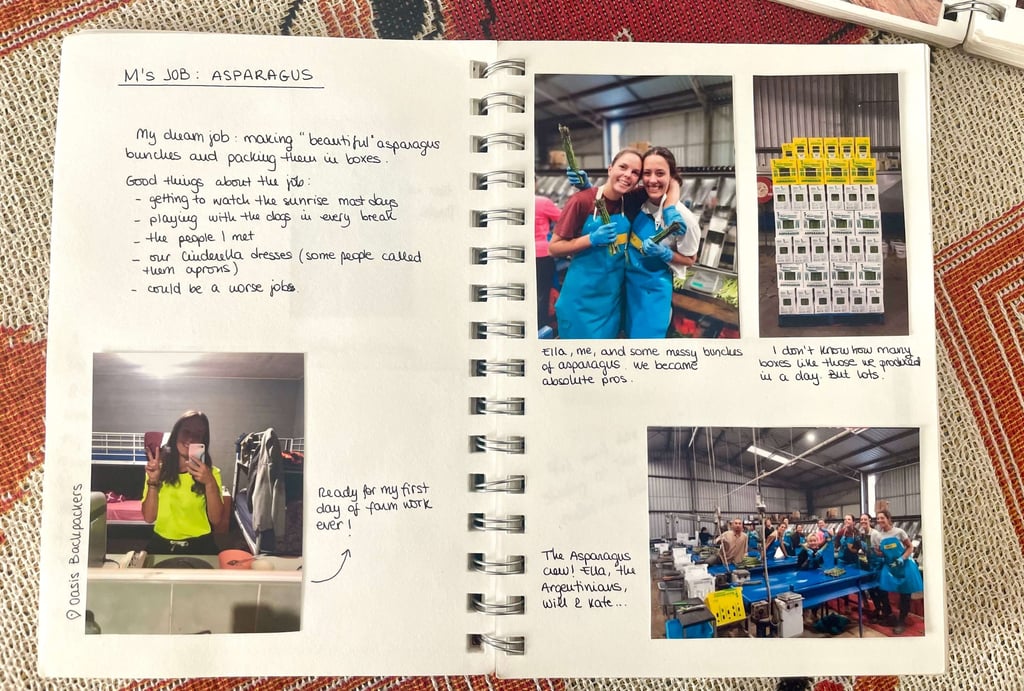 M's JOB: ASPARAGUS
My dream job: making "beautiful" asparagus
bunches and packing them in boxes.
Good things about the job:
- getting to watch the sunrise most days
- playing with the dogs in every break
- the people I met
- our Cinderella dresses (some people called
them aprons)
- could be a worse job.
Oasis Backpackers
Ready for my first
day of farm work
ever!
Ella, me, and some messy bunches
of asparagus. We became
absolute pros.
I don't know how many
boxes like those we produced
in a day. But lots.
The Asparagus
crew! Ella, the
Argentinians,
Will & Kate...